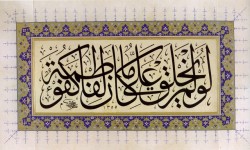 لو لم يخلق علي ما كان لفاطمة كفو